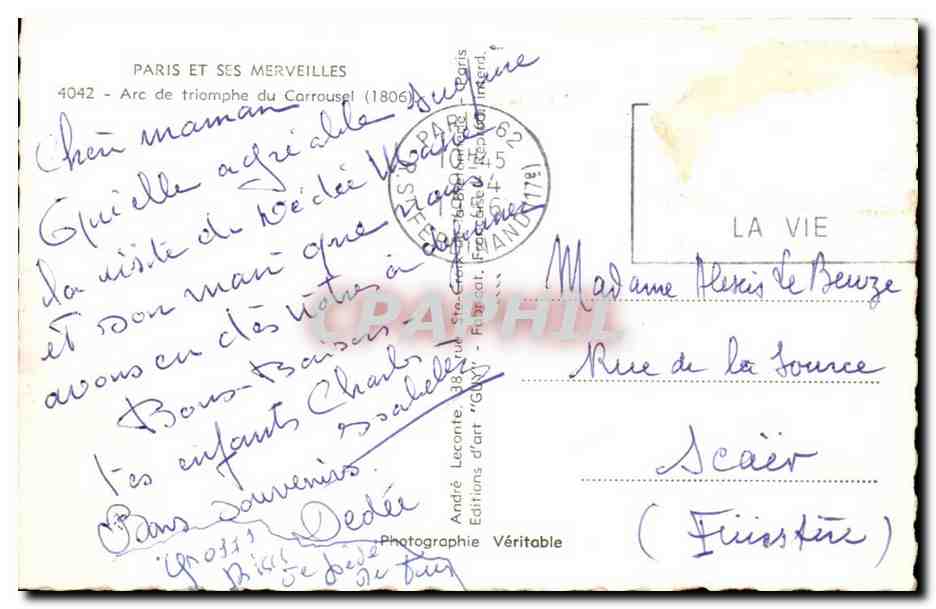 PARIS ET SES MERVEILLES
4042 - Arc de triomphe du Carrousel (1806)
Chère maman
Quelle agréable surprise
la visite de Dédée Marie
et son mari que nous
avons eu dès nôtres à dîner
Bons Baisers -
tes enfants Charles
Isabelle
Bons souvenirs
Dédée
gross
bises
de
de
André Leconte, 38, rue Ste-Croix-de-la-Bretonnerie - Paris
Editions d'art "GUY" - Fabricat. Française - Reproduct. interd.
Photographie Véritable
PARIS
62
10H45
9-4
LA VIE
Madame Alexis Le Beuze
Rue de la Source
Scaër
(Finistère)
CPAPHIL